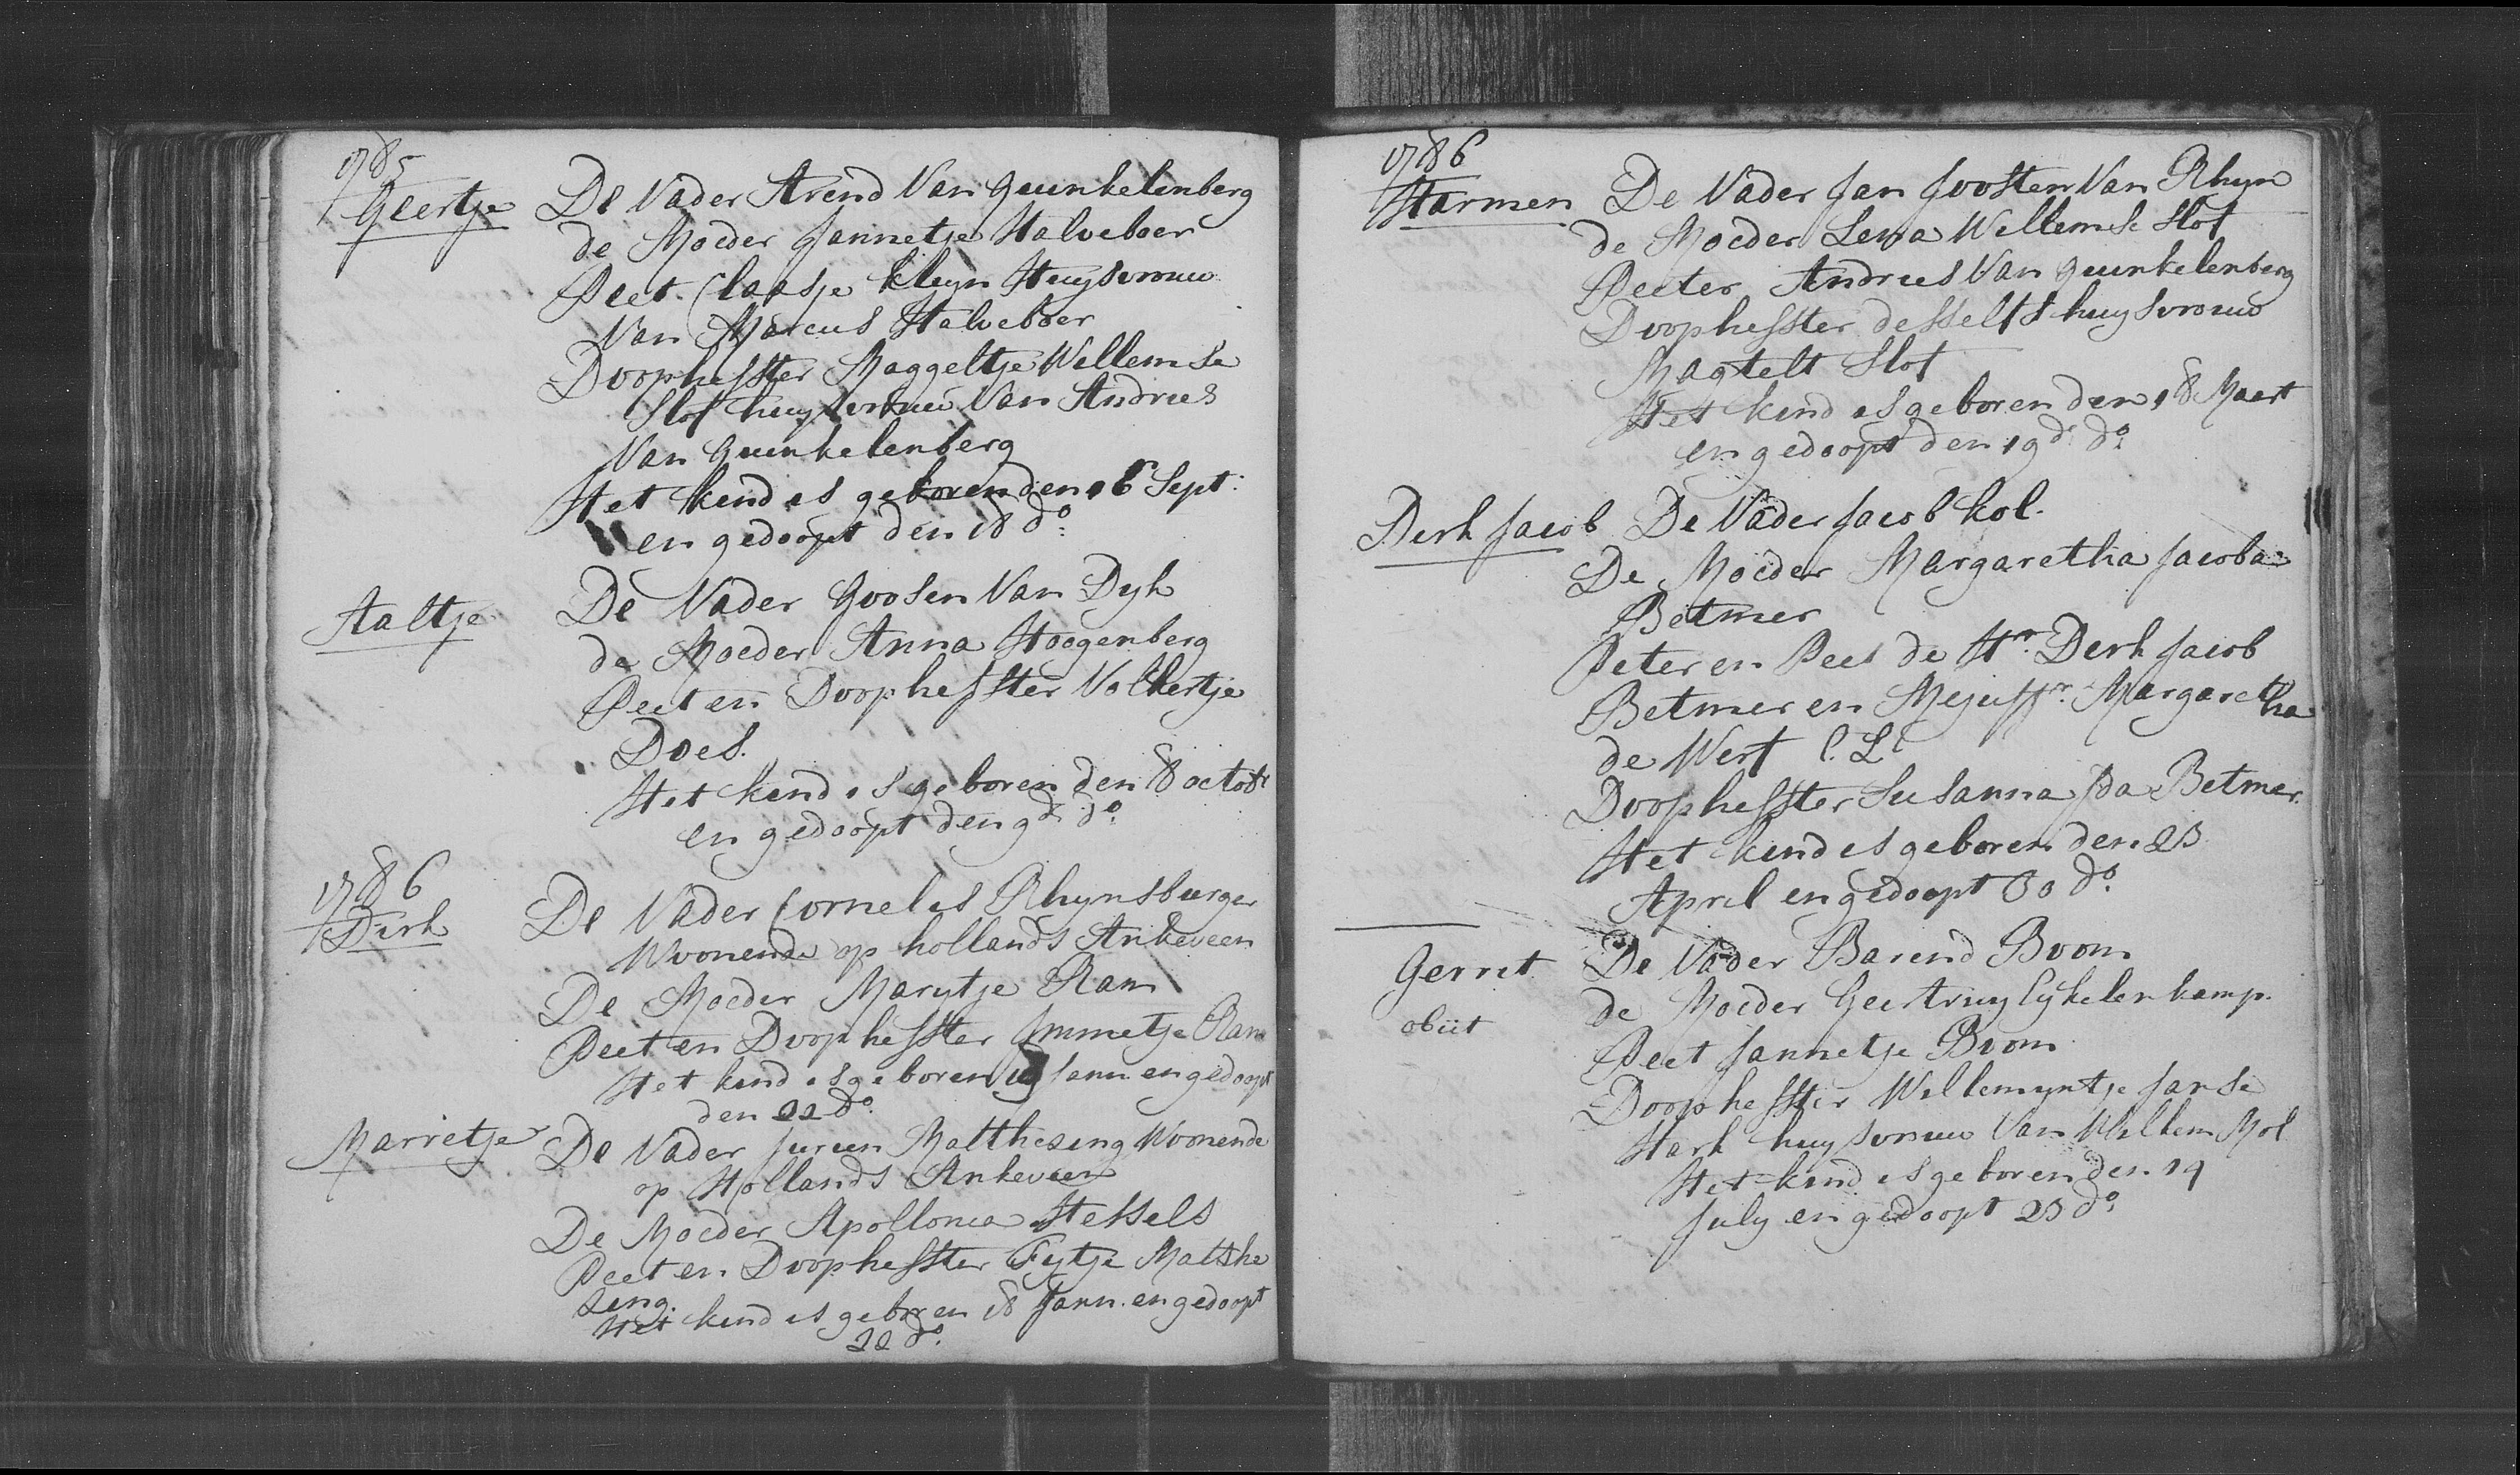 1785
Geertje De Vader Arend Van Quinkelenberg
de Moeder Jannetje Halveboer
Peet. Claasje Kleyn Huysvrouw
Van Marcus Halveboer
Doophefster Maggeltje Willemse
Slof huysvrouw Van Andries
Van Quinkelenberg
Het kind is geboren den 16 Sept:
en gedoopt den 18 do:
Aaltje De Vader Goosen Van Dyk
de Moeder Anna Hoogenberg
Peet en Doophefster Volkertje
Does.
Het kind is geboren den 8 octobr
en gedoopt den 9de do:
1786
Dirk De Vader Cornelis Rhynsburger
Woonende op hollands Ankeveen
De Moeder Marytje Ram
Peet en Doophefster Immetje Ram
Het kind is geboren 19 Jann. en gedoopt
den 22 do:
Marretje De Vader Jurien Matthesing Woonende
op Hollands Ankeveen
De Moeder Apollonia Hessels
Peet en Doophefster Fytje Matthe
sing.
Het kind is geboren 18 Jann. en gedoopt
22 do:
1786
Harmen De Vader Jan Joosten Van Rhyn
de Moeder Lena Willemse Slof
Peeter Andries Van Quinkelenberg
Doophefster desselfs huysvrouw
Magtelt Slof
Het kind is geboren den 18 Maert
en gedoopt den 19de do:
Derk Jacob De Vader Jacob Kol.
De Moeder Margaretha Jacoba
Betmer
Peter en Peet de Hr. Derk Jacob
Betmer en Mejuffr. Margaretha
de Werf
Doophefster Susanna Ida Betmer.
Het kind is geboren den 23
April en gedoopt 30 do:
Gerrit De Vader Barend Boom
obiit de Moeder Geertruy Eykelenkamp.
Peet Jannetje Boom
Doophefster Willemyntje Janse
Hark huysvrouw Van Willem Mol
Het kind is geboren den 14
July en gedoopt 23 do: